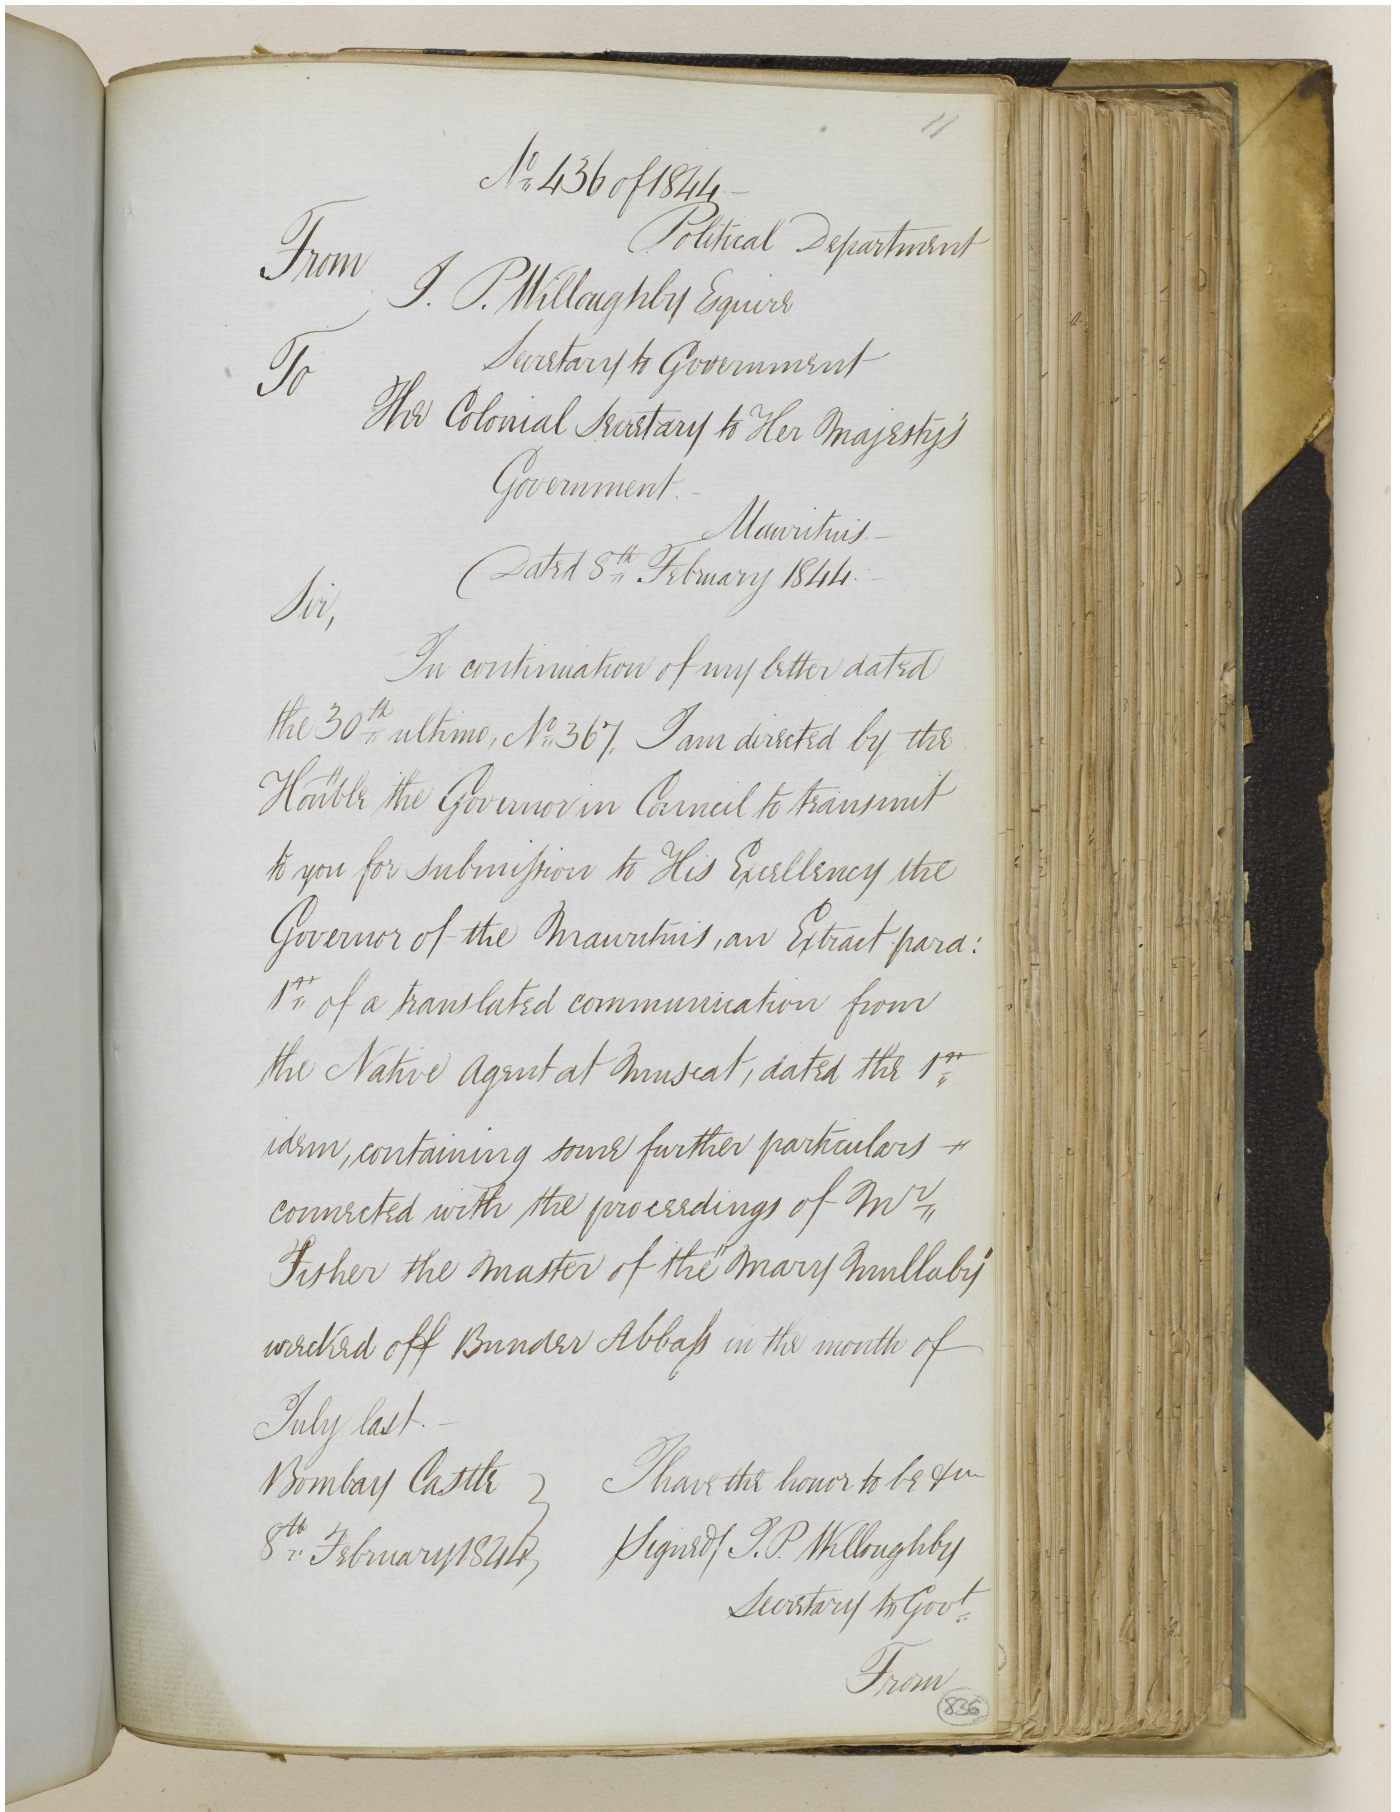 11
No 436 of 1844
Political Department
From
J. P. Willoughby Esquire
Secretary to Government
To
The Colonial Secretary to Her Majesty's
Government.
Mauritius.
Dated 8th February 1844.
Sir,
In continuation of my letter dated
the 30th ultimo, No 367, I am directed by the
Honble the Governor in Council to transmit
to you for submission to His Excellency the
Governor of the Mauritius, an Extract para:
1st of a translated communication from
the Native Agent at Muscat, dated the 1st
idem, containing some further particulars
connected with the proceedings of Mr
Fisher the Master of the "Mary Mullaby"
wrecked off Bunder Abbass in the month of
July last.
Bombay Castle } I have the honor to be &ca
8th February 1844 } /Signed/ J. P. Willoughby
Secretary to Govt
From
836